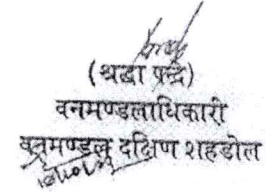 (श्रद्धा पन्द्रे)
वनमण्डलाधिकारी
वनमण्डल दक्षिण शहडोल